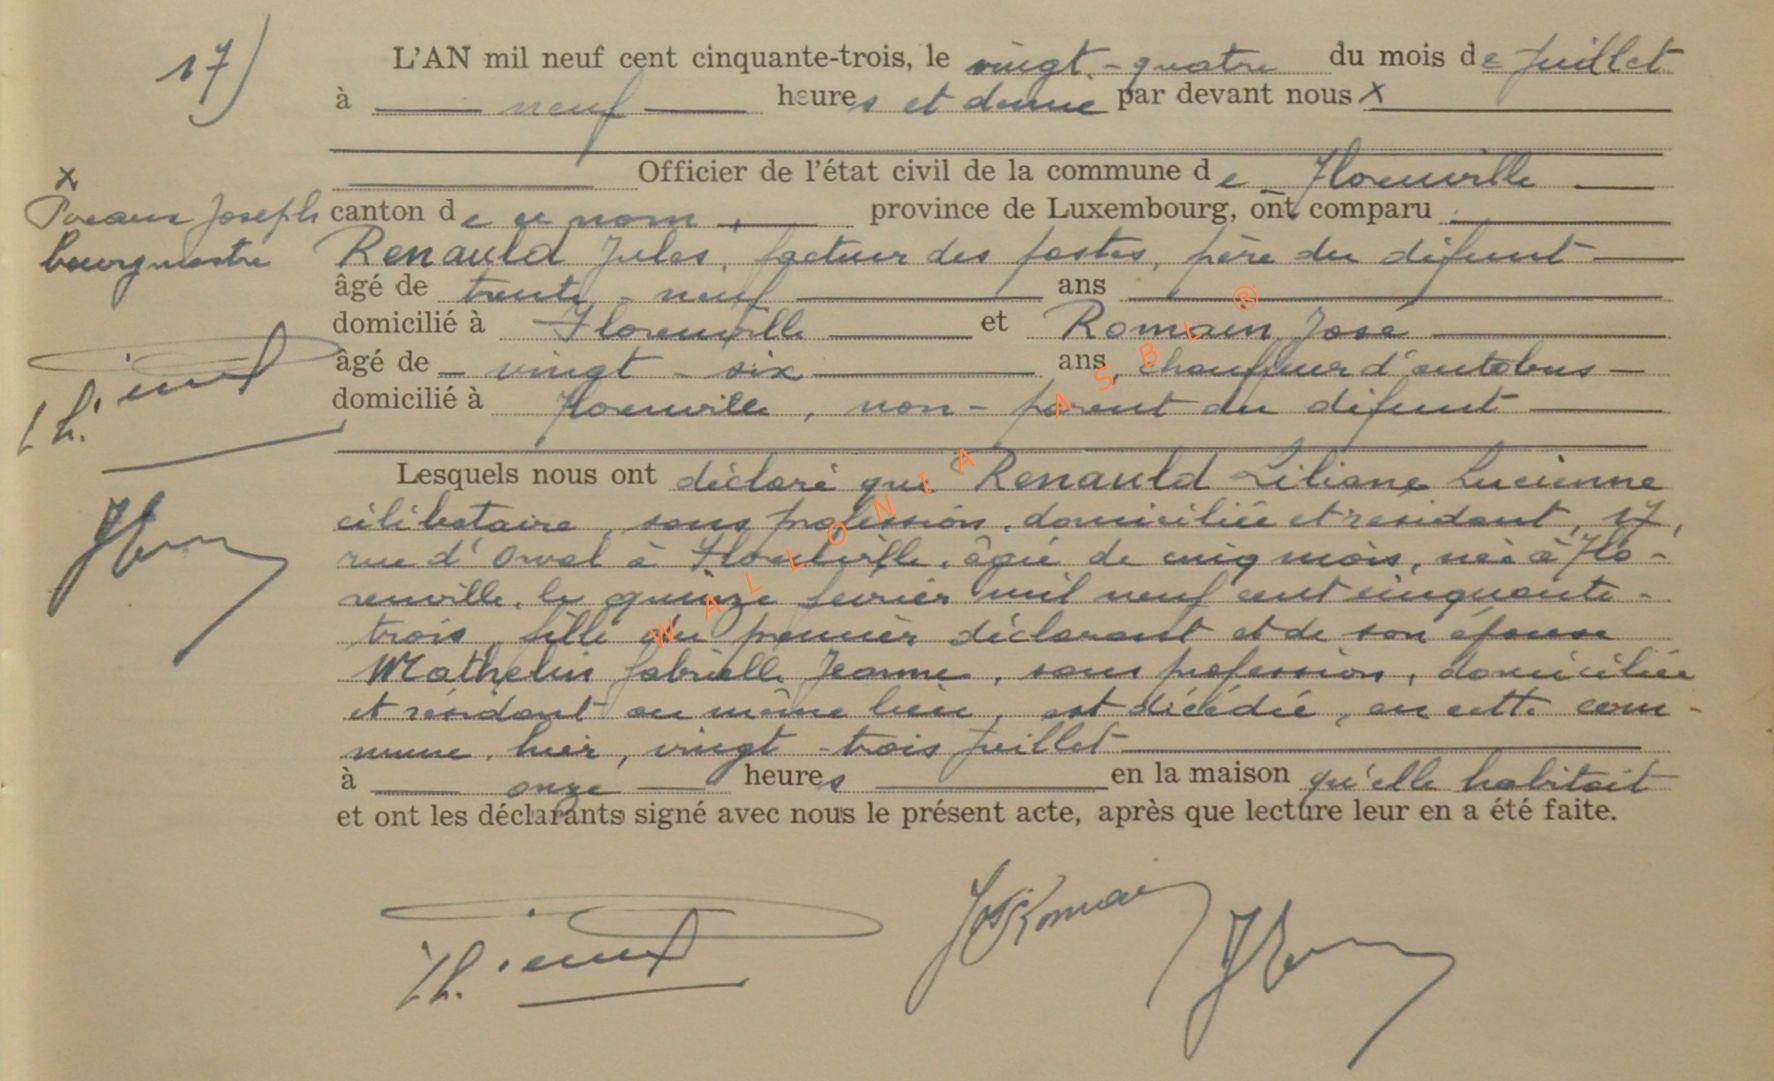 17)
L'AN mil neuf cent cinquante-trois, le vingt-quatre du mois de Juillet
à neuf heures et demie par devant nous x
Officier de l'état civil de la commune de Florenville
x
Joseph
bourgmestre
canton de ce nom, province de Luxembourg, ont comparu
Renauld Jules, facteur des postes, père du défunt
âgé de trente-neuf ans
domicilié à Florenville et Romain José
âgé de vingt-six ans, chauffeur d'autobus
domicilié à Florenville, non-parent du défunt
Lesquels nous ont déclaré que Renauld Liliane Lucienne
célibataire, sans profession, domiciliée et résidant, 17,
rue d'Orval à Florenville, âgée de cinq mois, née à Flo-
renville, le quinze février mil neuf cent cinquante-
trois, fille du premier déclarant et de son épouse
Mathelin Gabrielle Jeanne, sans profession, domiciliée
et résidant au même lieu, est décédée, en cette com-
mune, hier, vingt-trois juillet
à onze heures en la maison qu'elle habitait
et ont les déclarants signé avec nous le présent acte, après que lecture leur en a été faite.
Jos Romain
WALLONIA ASBL ®